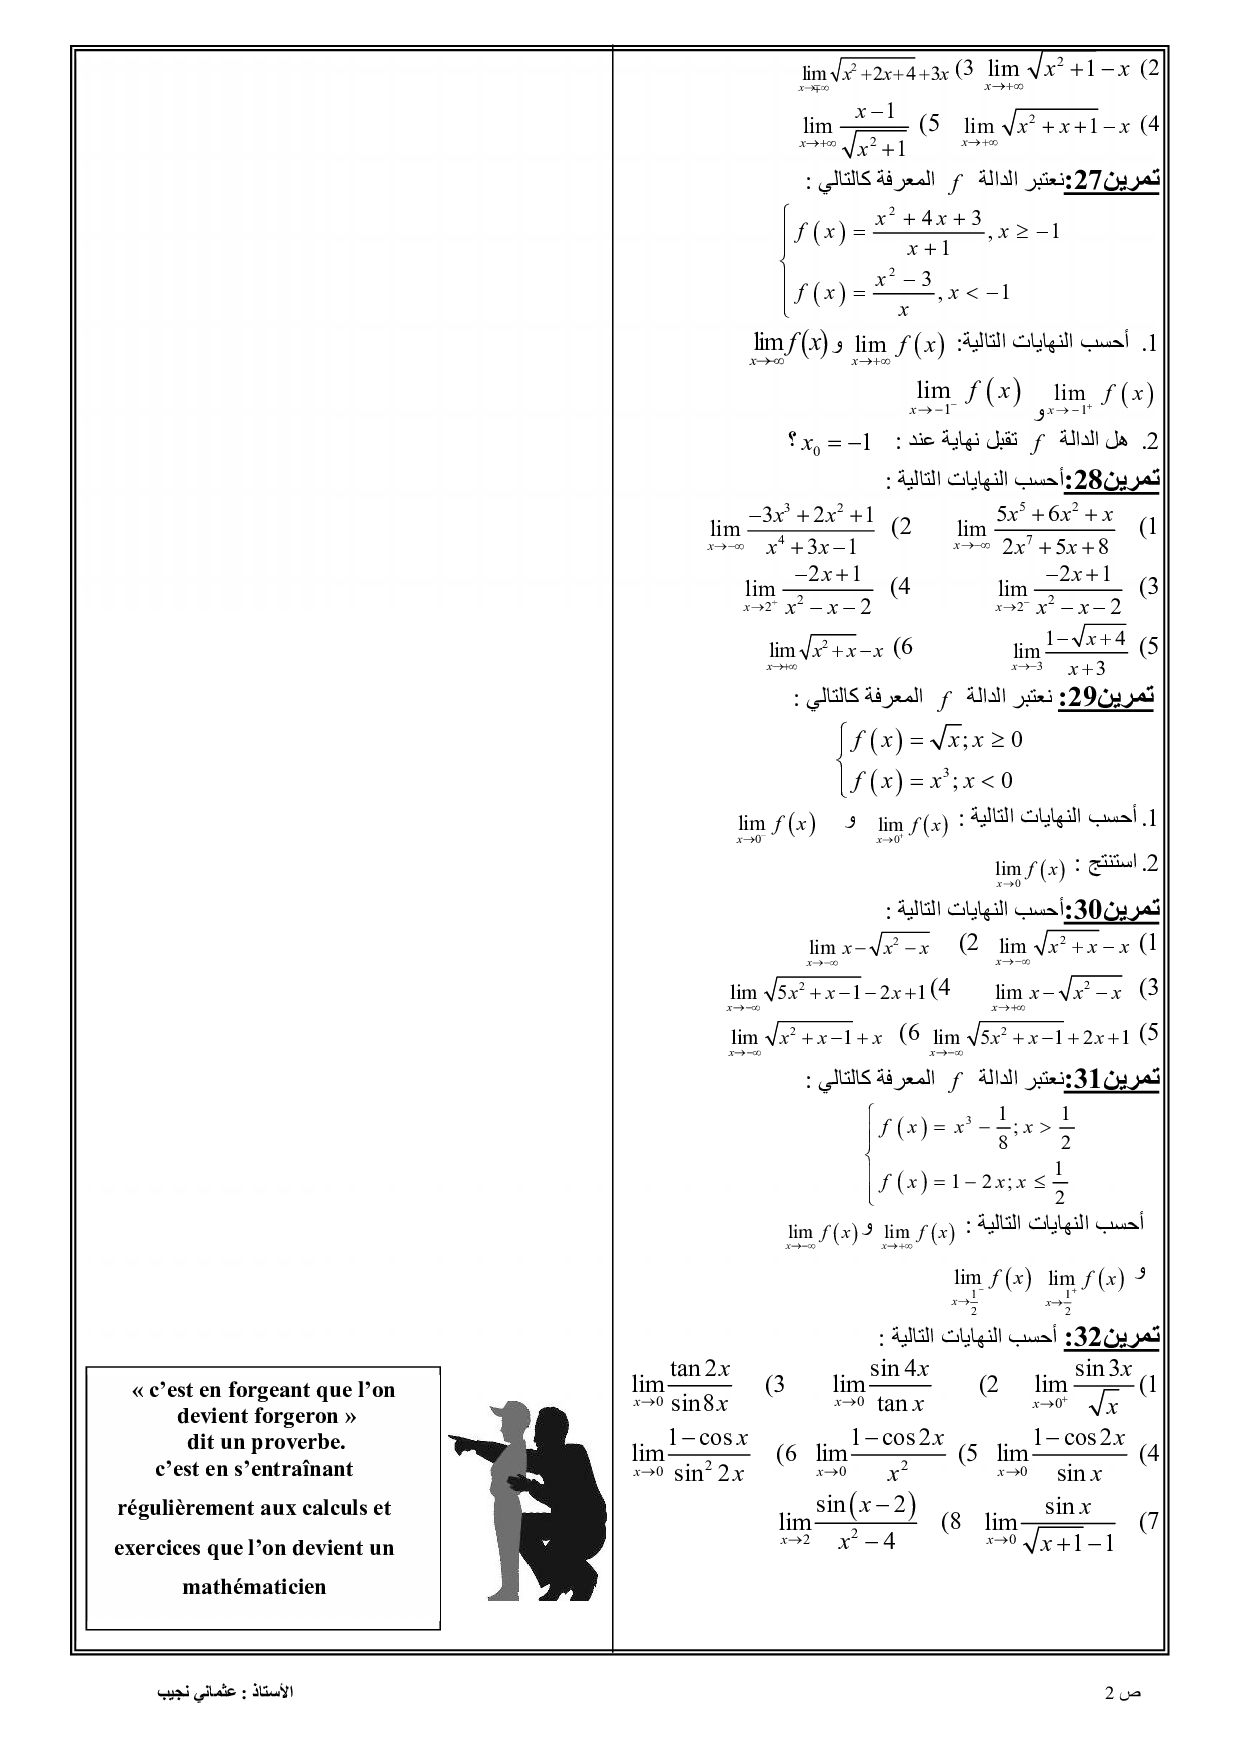 2) lim x→+∞ √(x²+1) − x 3) lim x→∓∞ √(x²+2x+4)+3x
4) lim x→+∞ √(x²+x+1) − x 5) lim x→+∞ (x−1)/√(x²+1)
تمرين27:نعتبر الدالة f المعرفة كالتالي :
f(x) = (x²+4x+3)/(x+1), x ≥ −1
f(x) = (x²−3)/x, x < −1
1. أحسب النهايات التالية: lim x→+∞ f(x) و lim x→−∞ f(x)
lim x→−1⁺ f(x) و lim x→−1⁻ f(x)
2. هل الدالة f تقبل نهاية عند : x₀ = −1 ؟
تمرين28:أحسب النهايات التالية :
1) lim x→−∞ (5x⁵+6x²+x)/(2x⁷+5x+8) 2) lim x→−∞ (−3x³+2x²+1)/(x⁴+3x−1)
3) lim x→2⁻ (−2x+1)/(x²−x−2) 4) lim x→2⁺ (−2x+1)/(x²−x−2)
5) lim x→−3 (1−√(x+4))/(x+3) 6) lim x→+∞ √(x²+x)−x
تمرين29: نعتبر الدالة f المعرفة كالتالي :
f(x) = √x; x ≥ 0
f(x) = x³; x < 0
1. أحسب النهايات التالية : lim x→0⁺ f(x) و lim x→0⁻ f(x)
2. استنتج : lim x→0 f(x)
تمرين30:أحسب النهايات التالية :
1) lim x→−∞ √(x²+x) − x 2) lim x→−∞ x−√(x²−x)
3) lim x→+∞ x−√(x²−x) 4) lim x→−∞ √(5x²+x−1)−2x+1
5) lim x→−∞ √(5x²+x−1)+2x+1 6) lim x→−∞ √(x²+x−1)+x
تمرين31:نعتبر الدالة f المعرفة كالتالي :
f(x) = x³ − 1/8; x > 1/2
f(x) = 1 − 2x; x ≤ 1/2
أحسب النهايات التالية : lim x→+∞ f(x) و lim x→−∞ f(x)
و lim x→1/2⁺ f(x) lim x→1/2⁻ f(x)
تمرين32: أحسب النهايات التالية :
1) lim x→0⁺ sin3x/√x 2) lim x→0 sin4x/tan x 3) lim x→0 tan2x/sin8x
4) lim x→0 (1−cos2x)/sin x 5) lim x→0 (1−cos2x)/x² 6) lim x→0 (1−cos x)/sin²2x
7) lim x→0 sin x/(√(x+1)−1) 8) lim x→2 sin(x−2)/(x²−4)
« c’est en forgeant que l’on
devient forgeron »
dit un proverbe.
c’est en s’entraînant
régulièrement aux calculs et
exercices que l’on devient un
mathématicien
ص 2
الأستاذ : عثماني نجيب